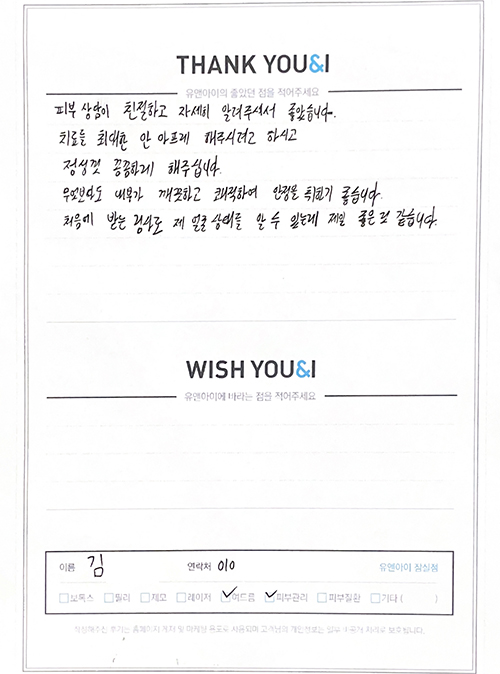 THANK YOU&I
유앤아이의 좋았던 점을 적어주세요
피부 상담이 친절하고 자세히 알려주셔서 좋았습니다.
치료를 최대한 안 아프게 해주시려고 하시고
정성껏 꼼꼼하게 해주십니다.
무엇보다도 내부가 깨끗하고 쾌적하여 안정을 취하기 좋습니다.
처음에 받는 검사로 제 얼굴 상태를 알 수 있는데 제일 좋은 것 같습니다.
WISH YOU&I
유앤아이에 바라는 점을 적어주세요
이름 김 연락처 010 유앤아이 잠실점
보톡스 필러 제모 레이저 여드름 피부관리 피부질환 기타 ( )